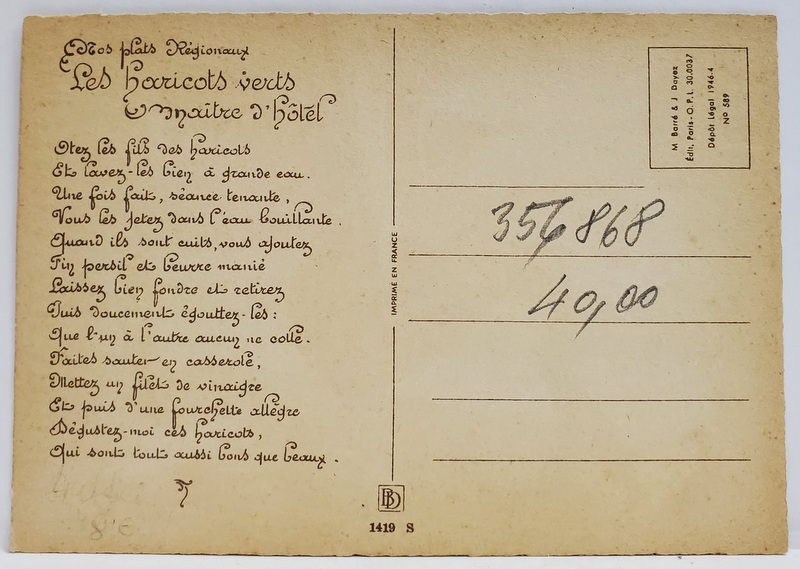 Nos plats Régionaux
Les haricots verts
Maître d'hôtel
Otez les fils des haricots
Et lavez-les bien à grande eau.
Une fois fait, séance tenante,
Vous les jetez dans l'eau bouillante.
Quand ils sont cuits, vous ajoutez
Fin persil et beurre manié
Laissez bien fondre et retirez
Puis doucement égouttez-les :
Que l'un à l'autre aucun ne colle.
Faites sauter en casserole,
Mettez un filet de vinaigre
Et puis d'une fourchette allègre
Dégustez-moi ces haricots,
Qui sont tout aussi bons que beaux.
8'€
IMPRIMÉ EN FRANCE
BD
1419 S
M Barré & J Dayez
Édit. Paris - O. P. L. 30.0037
Dépôt Légal 1946-4
N° 589
356868
40,00